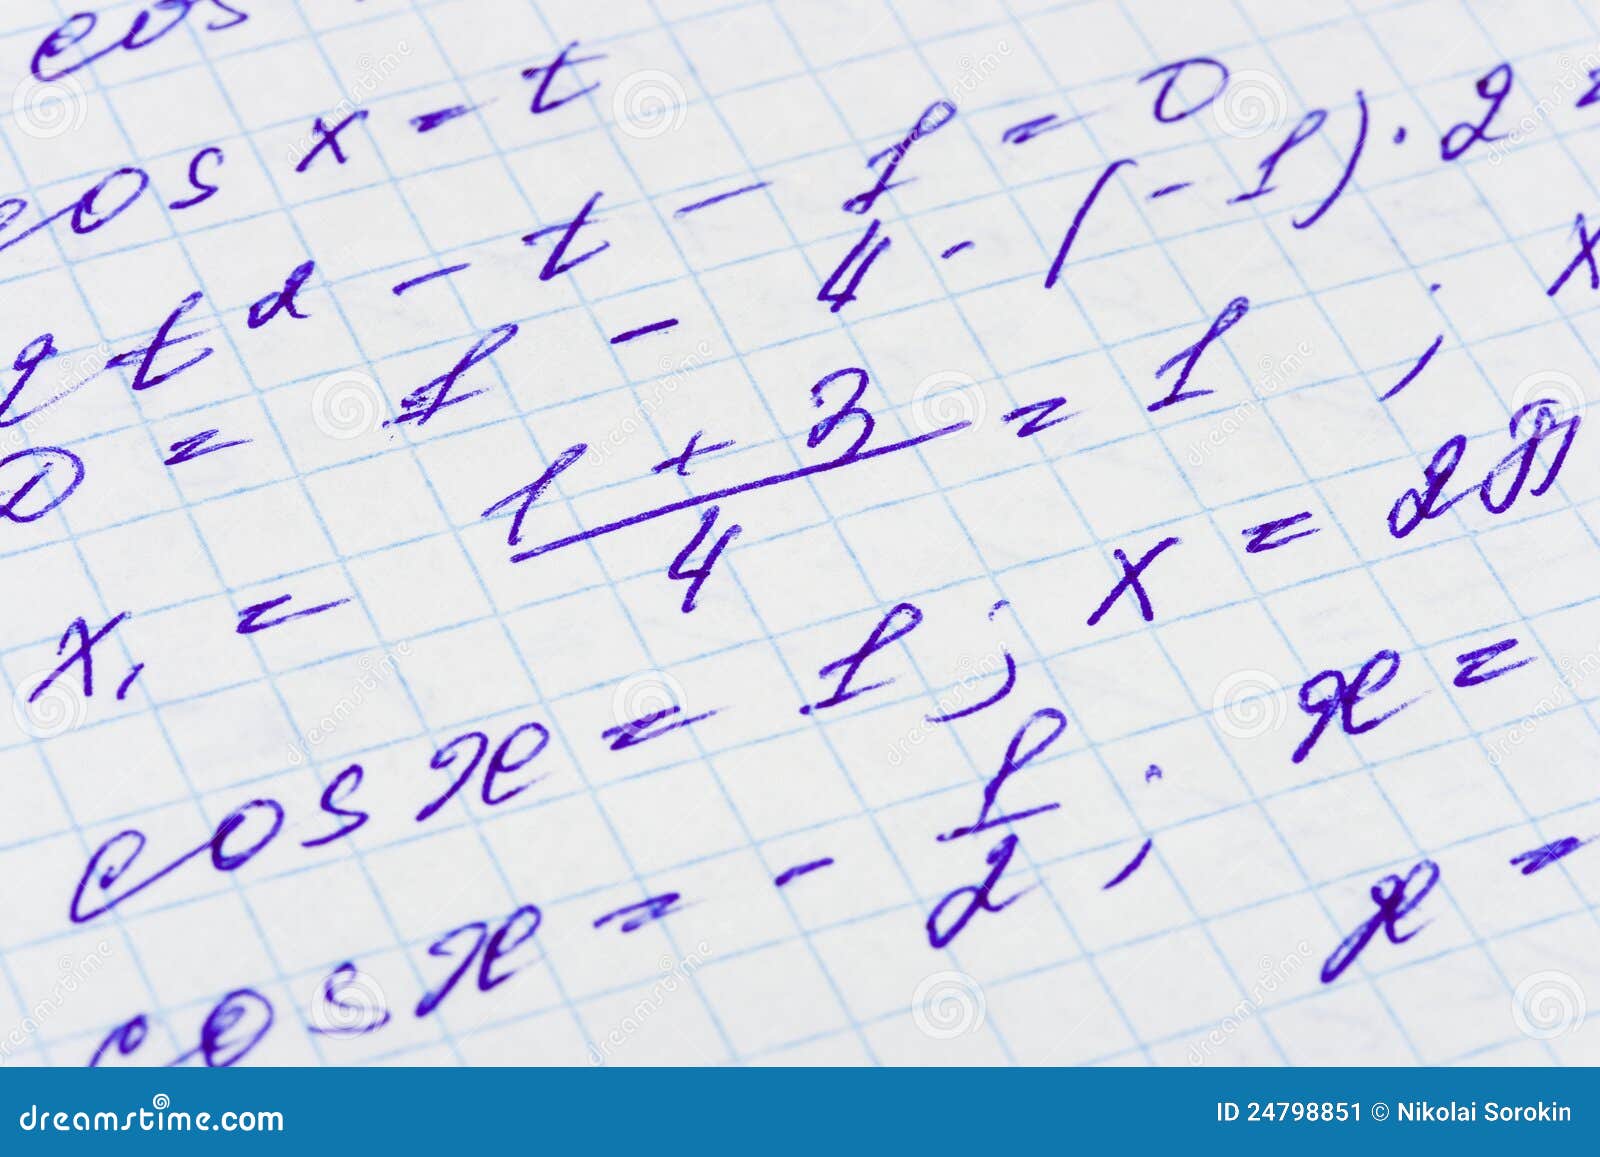 cos
cos x = t
2t² - t - 1 = 0
D = 1 - 4 · (-1) · 2 =
x₁ = (1 + 3)/4 = 1 ; x
cos x = 1 ; x = 2π
cos x = - 1/2 ; x =
x =
dreamstime.com
ID 24798851 © Nikolai Sorokin